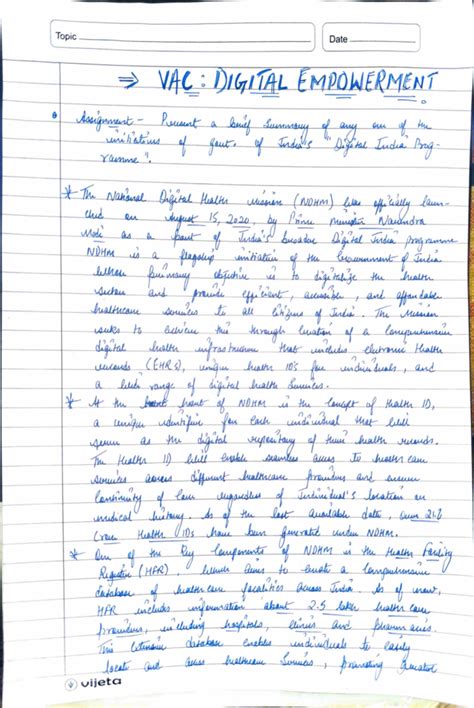 Topic
Date
⇒ VAC : DIGITAL EMPOWERMENT
Assignment - Present a brief Summary of any one of the
initiatives of govt. of India's "Digital India Prog-
ramme".
* The National Digital Health Mission (NDHM) was officially laun-
ched on August 15, 2020, by Prime Minister Narendra
Modi as a part of India's broader Digital India programme
NDHM is a flagship initiative of the Government of India
whose primary objective is to digitalize the health
sector and provide efficient, accessible, and affordable
healthcare services to all citizens of India. The Mission
seeks to achieve this through creation of a comprehensive
digital health infrastructure that includes electronic Health
records, (EHRs), unique health ID's for individuals, and
a wide range of digital health Services.
* At the heart of NDHM is the concept of Health ID,
a unique identifier for each individual that will
serve as the digital repository of their health records.
The Health ID will enable seamless access to healthcare
services across different healthcare providers and ensure
continuity of care regardless of Individual's location or
medical history. As of the last available date, over 21.8
Crore Health IDs have been generated under NDHM.
* One of the Key Components of NDHM is the Health Facility
Register (HFR), which aims to create a comprehensive
database of healthcare facilities across India. As of now,
HFR includes information about 2.5 lakh health care
providers, including hospitals, clinics and pharmacies.
This extensive database enables individuals to easily
locate and access healthcare Services, promoting greater
vijeta